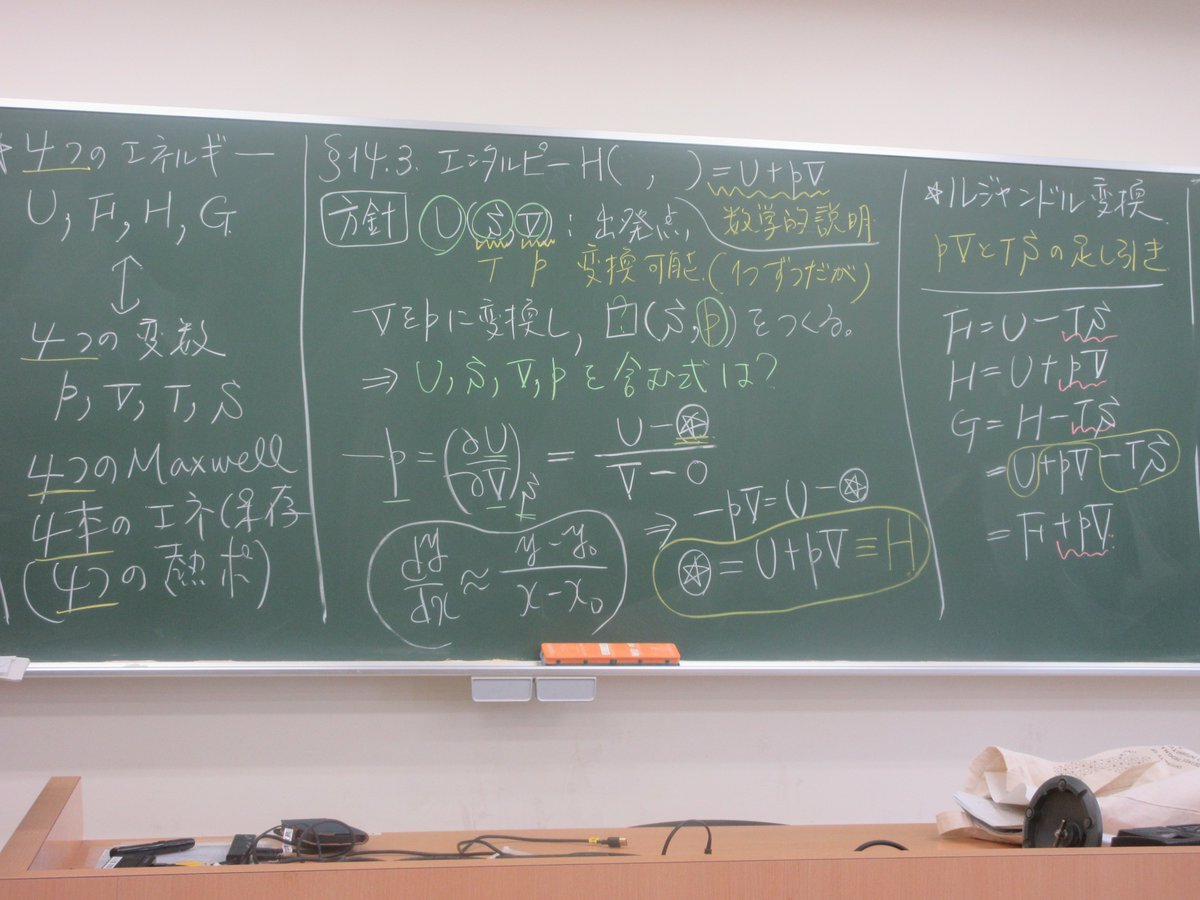 ★4つのエネルギー
U, F, H, G
↕
4つの変数
p, V, T, S
4つのMaxwell
4本のエネ保存
(4つの熱ポ)
§14.3. エンタルピーH( , )=U+pV
方針 U(S, V):出発点, 数学的説明
T p 変換可能.(1つずつだが)
Vをpに変換し, □(S, p)をつくる。
⇒ U, S, V, pを含む式は?
-p = (∂U/∂V)_S = (U-☆)/(V-0)
⇒ -pV=U-☆
dy/dx ≈ (y-y₀)/(x-x₀)
☆=U+pV≡H
☆ルジャンドル変換
pVとTSの足し引き
F=U-TS
H=U+pV
G=H-TS
=U+pV-TS
=F+pV